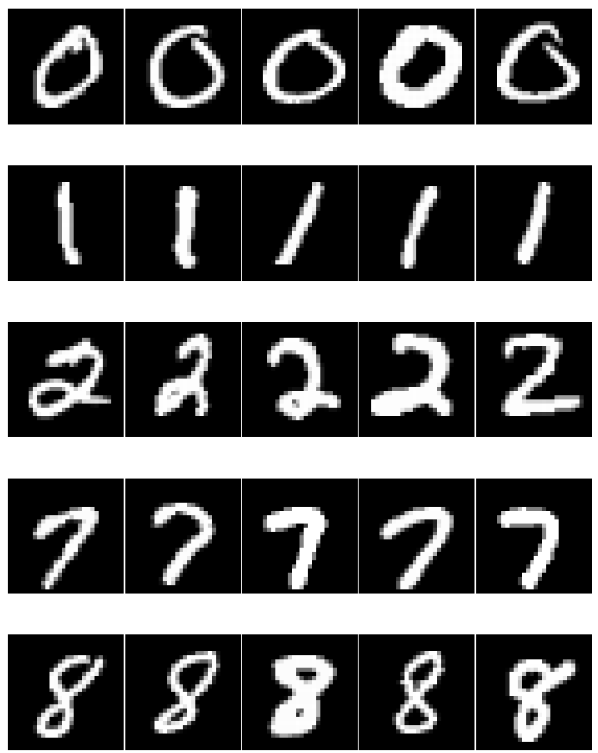 0 0 0 0 0
1 1 1 1 1
2 2 2 2 2
7 7 7 7 7
8 8 8 8 8